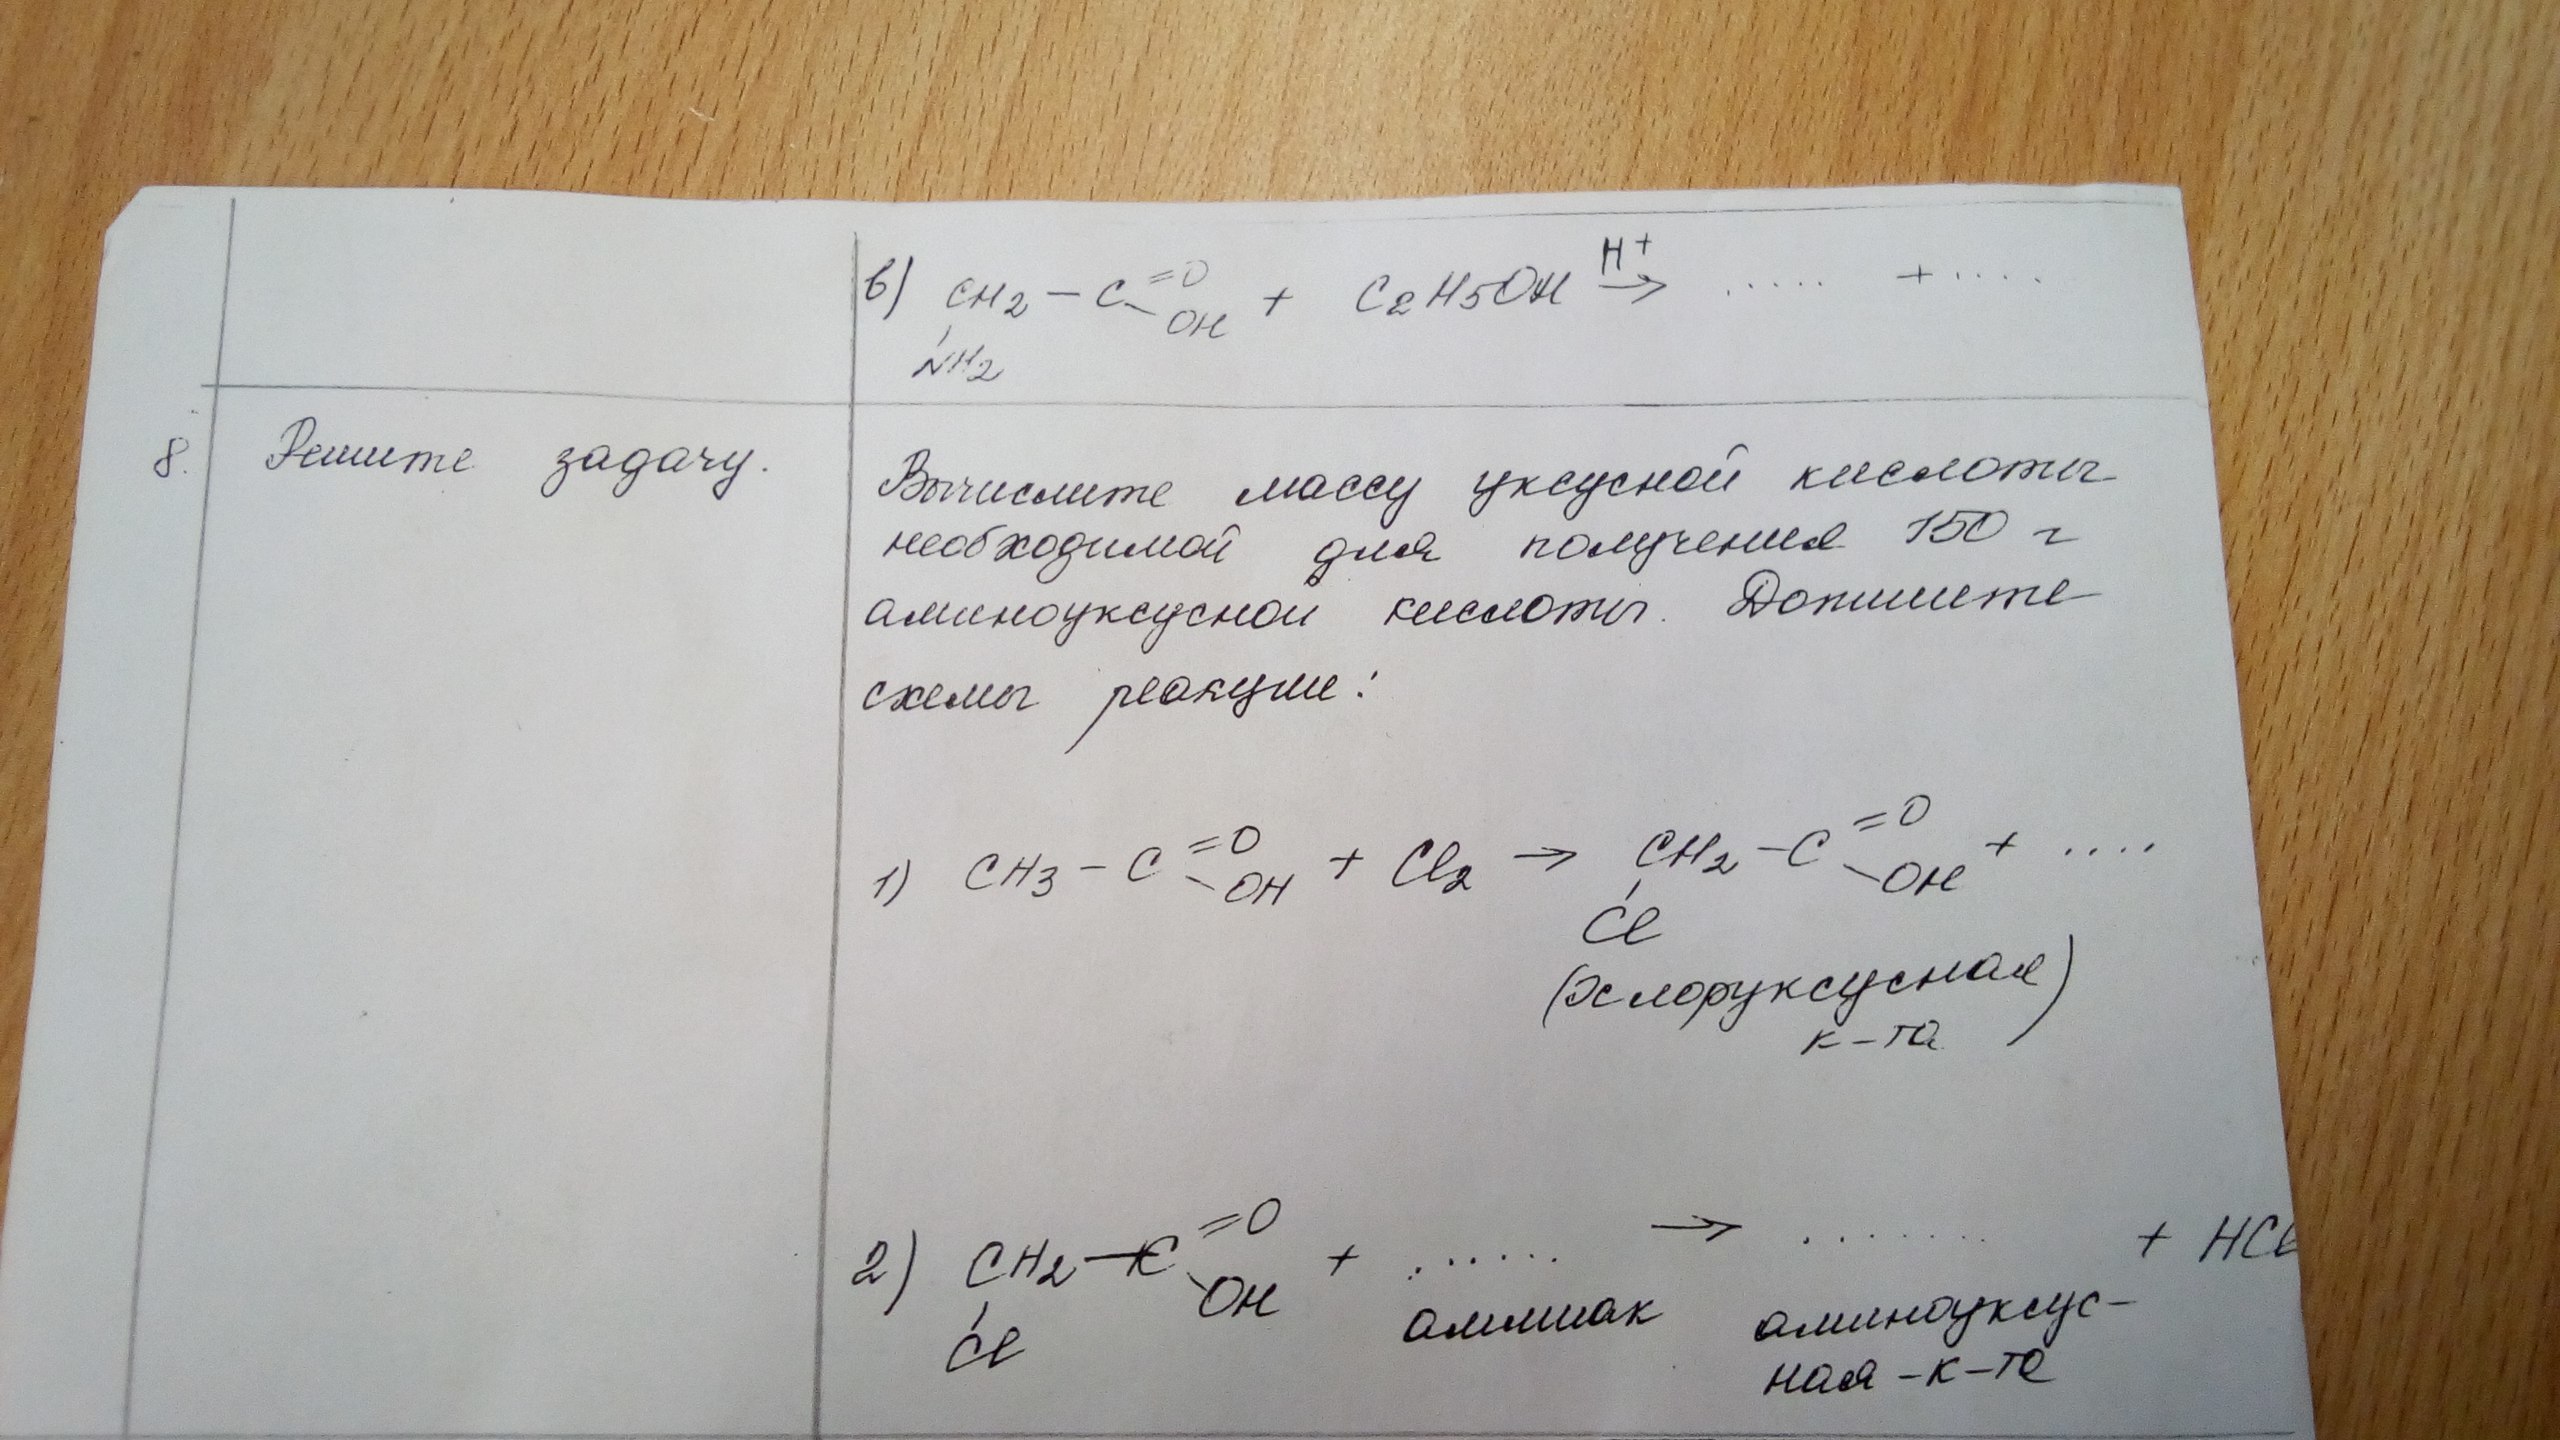 в) CH2 - C =O + C2H5OH H+ → ..... + ....
- OH
NH2
8. Решите задачу.
Вычислите массу уксусной кислоты
необходимой для получения 150 г
аминоуксусной кислоты. Допишите
схемы реакции:
1) CH3 - C =O + Cl2 → CH2 - C =O + ....
- OH - OH
Cl
(хлоруксусная)
к-та
2) CH2 - C =O + ...... → ....... + HCl
- OH
Cl
аммиак аминоуксус-
ная -к-та